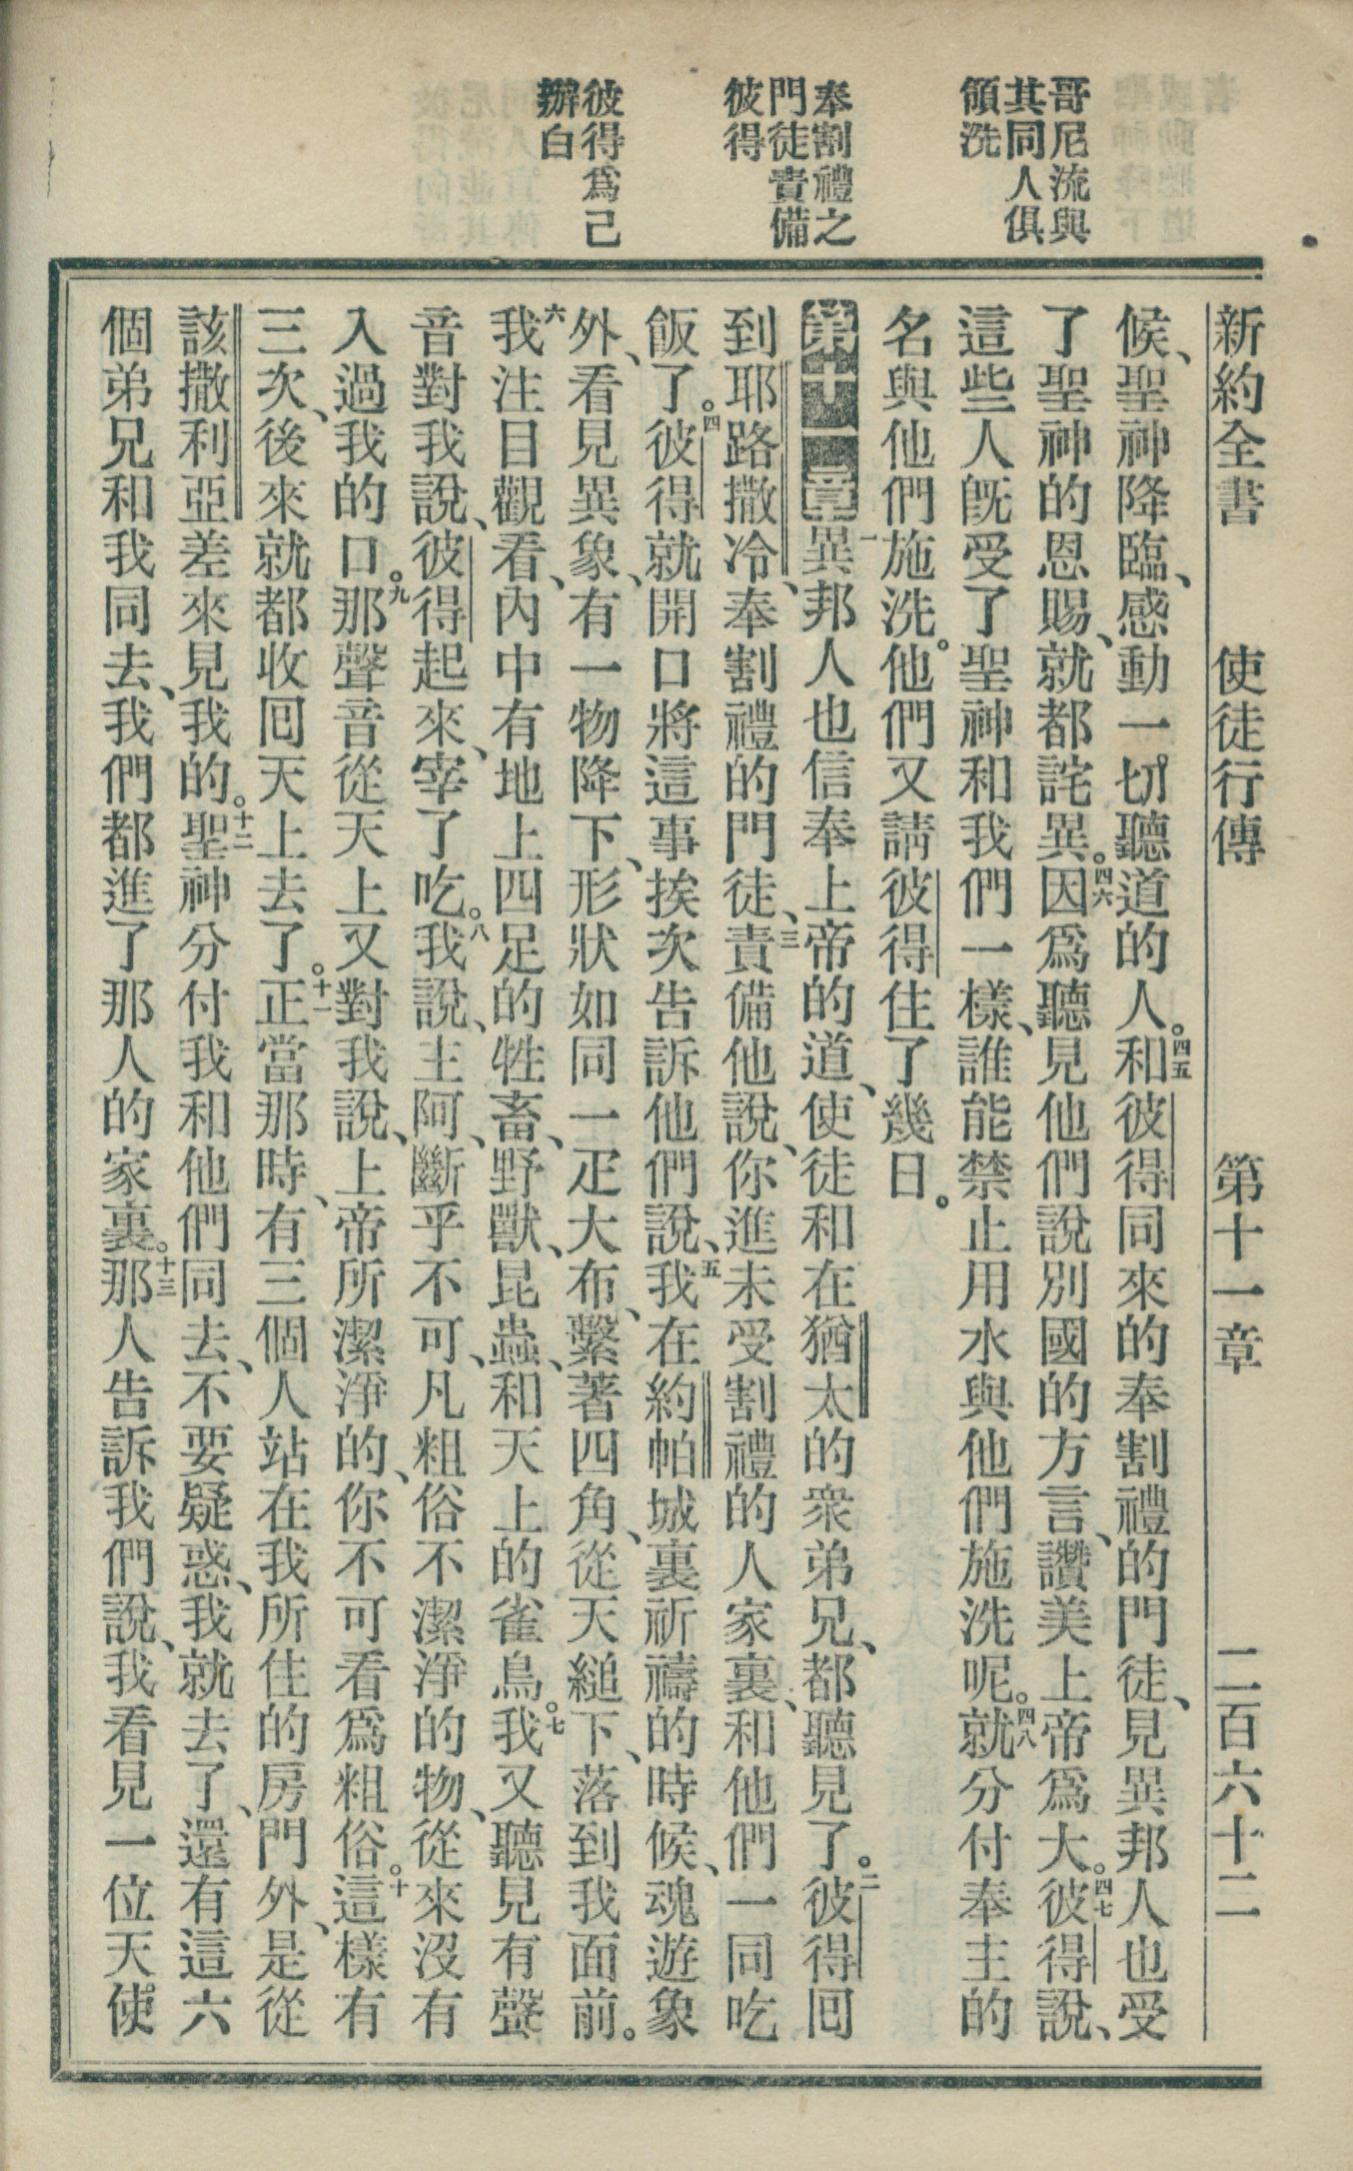 哥尼流與
其同人俱
領洗
奉割禮之
門徒責備
彼得
彼得爲己
辦白
新約全書 使徒行傳 第十一章 二百六十二
候、聖神降臨、感動一切聽道的人。四五和彼得同來的奉割禮的門徒、見異邦人也受
了聖神的恩賜、就都詫異。四六因爲聽見他們說別國的方言、讚美上帝爲大。四七彼得說、
這些人旣受了聖神和我們一樣、誰能禁止用水與他們施洗呢。四八就分付奉主的
名與他們施洗。他們又請彼得住了幾日。
第十一章一異邦人也信奉上帝的道、使徒和在猶太的衆弟兄、都聽見了。二彼得囘
到耶路撒冷、奉割禮的門徒、三責備他說、你進未受割禮的人家裏、和他們一同吃
飯了。四彼得就開口將這事挨次告訴他們說、五我在約帕城裏祈禱的時候、魂遊象
外、看見異象、有一物降下、形狀如同一疋大布、繫著四角、從天縋下、落到我面前。
六我注目觀看、內中有地上四足的牲畜、野獸、昆蟲、和天上的雀鳥。七我又聽見有聲
音對我說、彼得起來、宰了吃。八我說、主阿、斷乎不可、凡粗俗不潔淨的物、從來沒有
入過我的口。九那聲音從天上又對我說、上帝所潔淨的、你不可看爲粗俗。十這樣有
三次、後來就都收囘天上去了。十一正當那時、有三個人站在我所住的房門外、是從
該撒利亞差來見我的。十二聖神分付我和他們同去、不要疑惑、我就去了、還有這六
個弟兄和我同去、我們都進了那人的家裏。十三那人告訴我們說、我看見一位天使